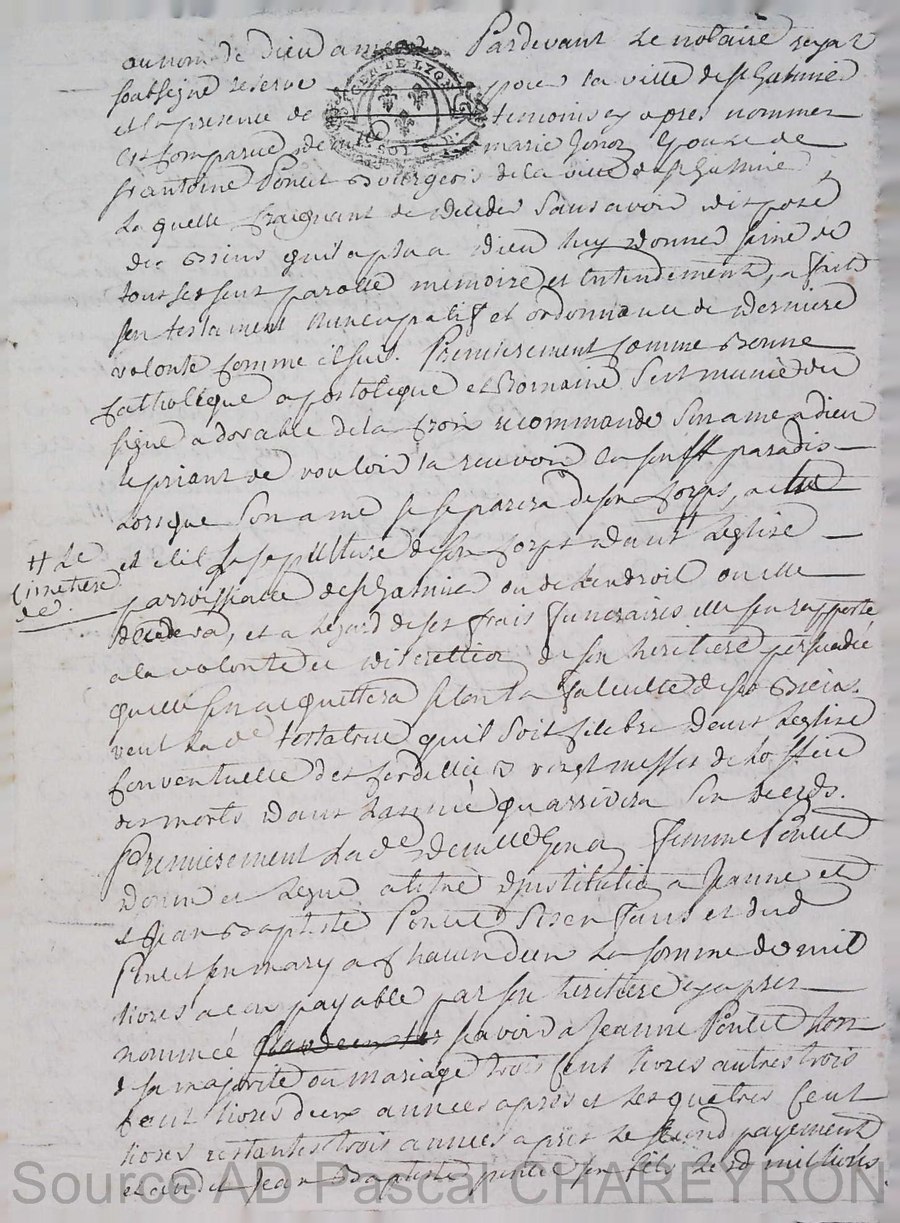 au nom de dieu amen Pardevant Le notaire royal
soubsigné reservé pour la ville de st Galmier
et en presence de temoins cy apres nommes
GEN DE LYON
SOLS
est Comparue marie Epouse de
sr antoine Poncet Bourgeois de la ville de st Galmier
La quelle Craignant de deceder sans avoir disposé
des Biens quil a plu a dieu luy donner saine de
tous ses sens parolle memoire et Entendement, a fait
son testament nuncupatif et ordonnance de derniere
volonté Comme il suit. Premierement Comme Bonne
Catholique apostolique et Romaine sest munie du
signe adorable de la Croix recommandé son ame a dieu
le priant de vouloir la recevoir en son st paradis
Lorsque son ame se separera de son Corps,
et elit sa sepulture de son Corps dans # Leglise
# Le
Cimetiere
de
parroissialle de st Galmier ou de Lendroit ou elle
decedera, et a legard de ses frais funeraires elle sen rapporte
a la volonté et discrettion de son heritiere persuadée
quelle sen acquittera selon la faculté de ses Biens
veut La de testatrice quil soit Celebré dans Leglise
Conventuelle des Cordelliers vingt messes de Loffice
des morts dans Lannée quarrivera son deceds.
Premierement La de demlle femme Poncet
donne et Legue a titre dinstitution a Jeanne et
a Jean Baptiste Poncet ses enfans et dud
Poncet son mary a Chacun deux La somme de mil
livres a eux payable par son heritiere cy apres
nommée savoir a Jeanne Poncet lors
de sa majorité ou mariage trois Cent livres autres trois
Cent livres deux années apres et les quatres Cent
livres restantes trois années apres Le second payement
et aud Jean Baptiste poncet son fils Les d mil livres
Source AD Pascal CHAREYRON